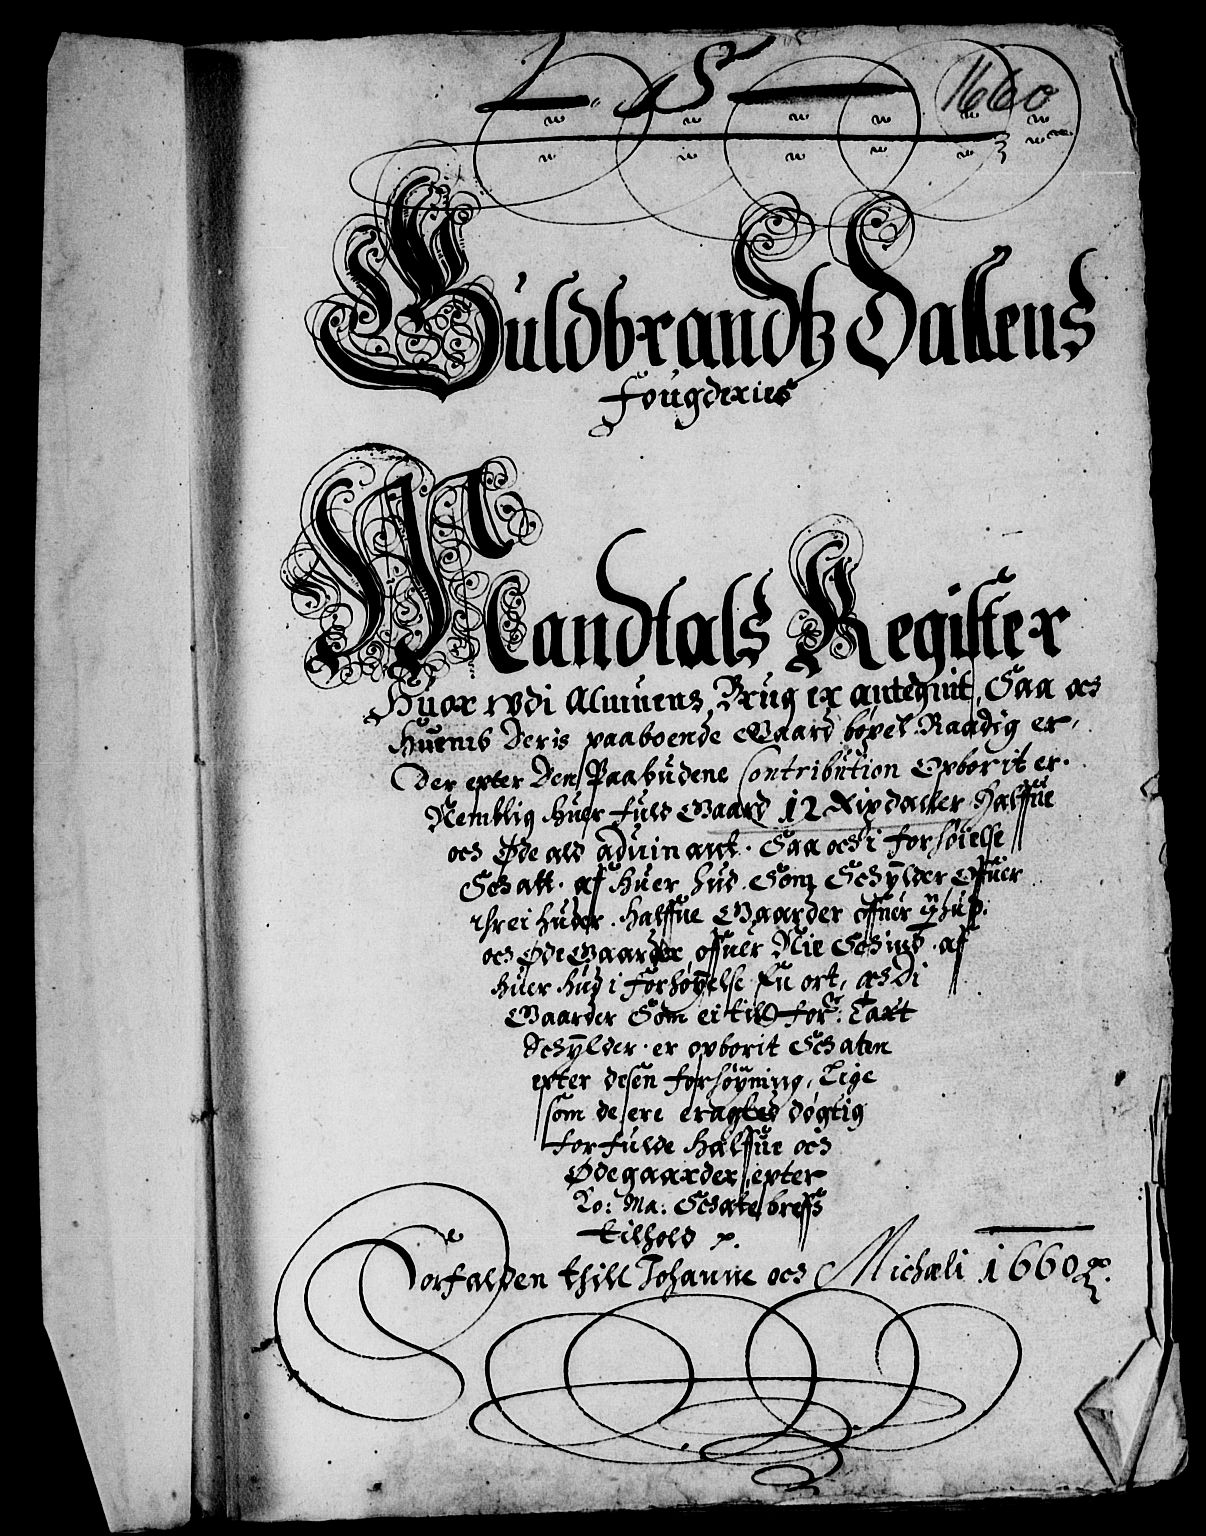 1660
Guldbrandtz Dallens
Fougderies
Mandtals Register
Huor udi Almuens Brug er antegnit, Saa och
Huemb deris paaboende Gaard bøxel Raadig er,
Der epter den Paabudene Contribution Opborit er.
Nemblig huer fuld Gaard 12 Rixdaller halffue
och Øde ald aduinant. Saa och i forhøielse
Schatt. af huer hud. Som Schÿlder offuer
threi huder. halffue Gaarder offuer hud.
och Øde Gaarder offuer Nie Schind. af
huer hud i forhøÿelse En ort, och di
Gaarder Som ei till for: Taxt
Schÿlder. er opborit Schaten
epter desen forhøÿning, Lige
som de ere eragted døgtig
for fulde halffue och
Ødegaarder, epter
Ko: Ma: Schatebreffs
tilhold
Forfalden thill Johanne och Michæli 1660